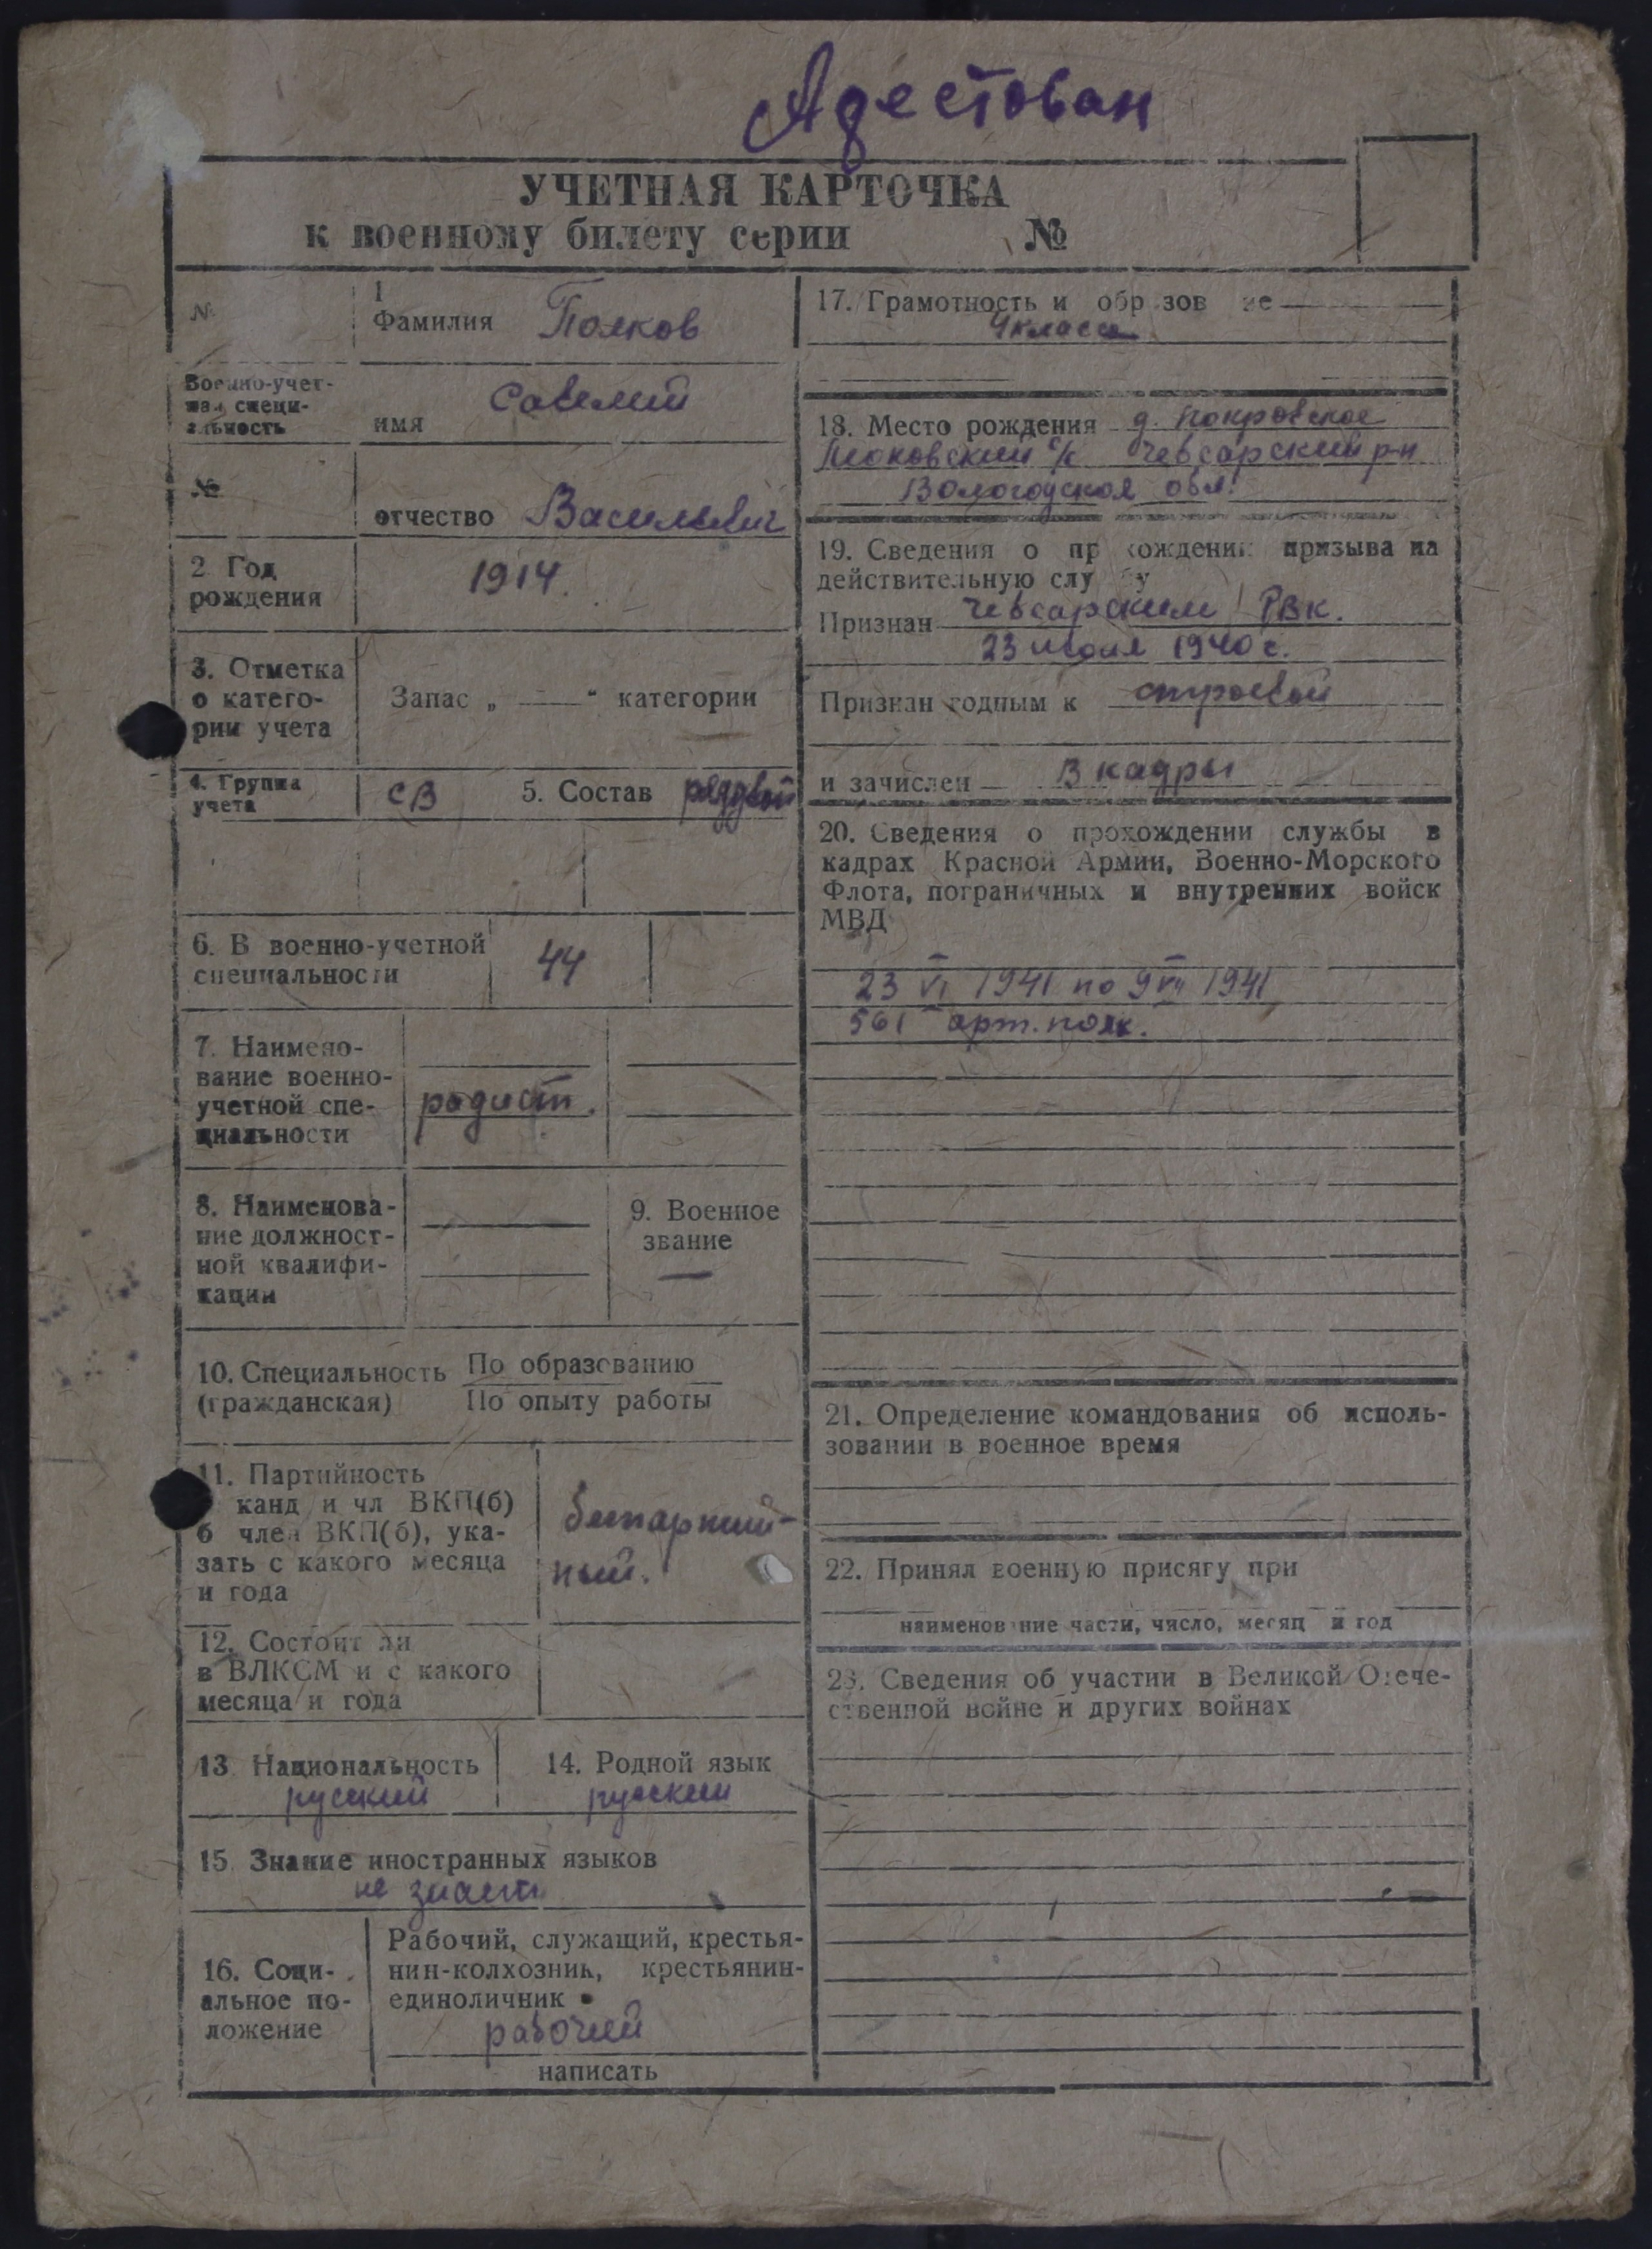 Адестован
УЧЕТНАЯ КАРТОЧКА
к военному билету серии №
№
1
Фамилия Поляков
Военно-учет-
ная специ-
альность
имя Савелий
№
отчество Васильевич
2 Год
рождения
1914.
3. Отметка
о катего-
рии учета
Запас „ —— “ категории
4. Группа
учета
СВ 5. Состав рядовой
6. В военно-учетной
специальности
44
7. Наимено-
вание военно-
учетной спе-
циальности
радист.
8. Наименова-
ние должност-
ной квалифи-
кации
9. Военное
звание
—
10. Специальность
(гражданская)
По образованию
По опыту работы
11. Партийность
канд и чл ВКП(б)
б член ВКП(б), ука-
зать с какого месяца
и года
беспартий-
ный.
12. Состоит ли
в ВЛКСМ и с какого
месяца и года
13 Национальность
русский
14. Родной язык
русский
15. Знание иностранных языков
не знает
16. Соци-
альное по-
ложение
Рабочий, служащий, крестья-
нин-колхозник, крестьянин-
единоличник
рабочий
написать
17. Грамотность и обр зов ие
4 класса
18. Место рождения д. Покровское
с/с Чебсарский р-н
Вологодской обл.
19. Сведения о пр хождении призыва на
действительную слу бу
Признан Чебсарским РВК.
23 июля 1940 г.
Признан годным к строевой
и зачислен В кадры
20. Сведения о прохождении службы в
кадрах Красной Армии, Военно-Морского
Флота, пограничных и внутренних войск
МВД
23 VI 1941 по 9 VII 1941
561 арт. полк.
21. Определение командования об исполь-
зовании в военное время
22. Принял военную присягу при
наименов ние части, число, месяц и год
23. Сведения об участии в Великой Отече-
ственной войне и других войнах